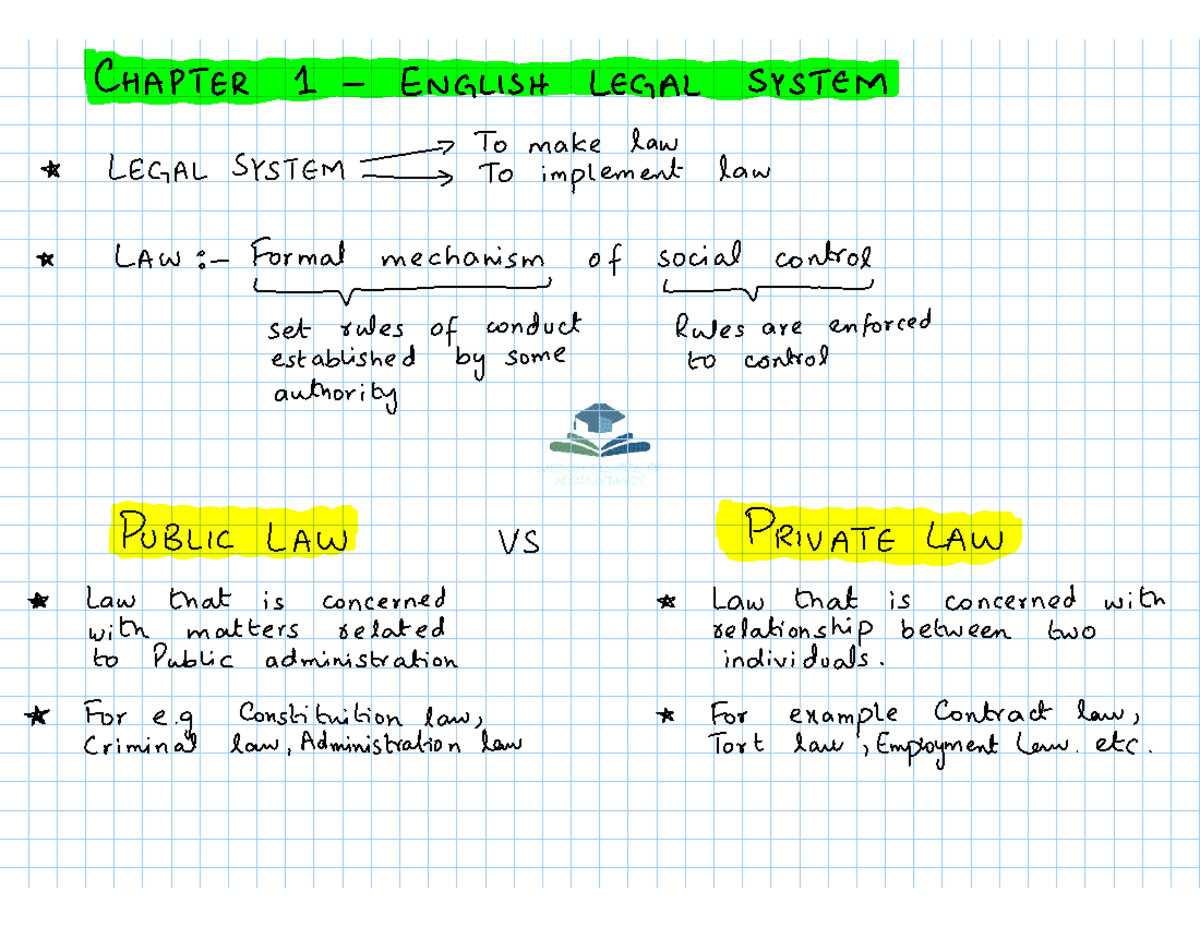 CHAPTER 1 - ENGLISH LEGAL SYSTEM
★ LEGAL SYSTEM → To make law
→ To implement law
★ LAW :- Formal mechanism of social control
set rules of conduct
established by some
authority
Rules are enforced
to control
PUBLIC LAW VS PRIVATE LAW
★ Law that is concerned
with matters related
to Public administration
★ For e.g Constituition law,
Criminal law, Administration law
★ Law that is concerned with
relationship between two
individuals.
★ For example Contract law,
Tort law, Employment Law. etc.